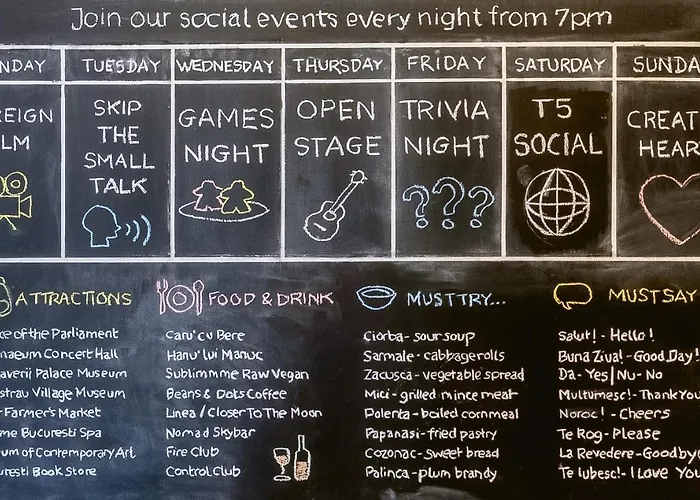 Join our social events every night from 7pm
NDAY TUESDAY WEDNESDAY THURSDAY FRIDAY SATURDAY SUNDA
EIGN
LM
SKIP
THE
SMALL
TALK
GAMES
NIGHT
OPEN
STAGE
TRIVIA
NIGHT
T5
SOCIAL
CREAT
HEAR
ATTRACTIONS
ce of the Parliament
naeum Concert Hall
averii Palace Museum
strau Village Museum
Farmer's Market
me Bucuresti Spa
um of Contemporary Art
uresti Book Store
FOOD & DRINK
Caru' cu Bere
Hanu' lui Manuc
Sublimmme Raw Vegan
Beans & Dots Coffee
Linea / Closer To The Moon
Nomad Skybar
Fire Club
Control Club
MUST TRY...
Ciorba - sour soup
Sarmale - cabbage rolls
Zacusca - vegetable spread
Mici - grilled mince meat
Polenta - boiled cornmeal
Papanasi - fried pastry
Cozonac - sweet bread
Palinca - plum brandy
MUST SAY
Salut! - Hello!
Buna Ziua! - Good Day!
Da - Yes | Nu - No
Multumesc! - Thank You
Noroc! - Cheers
Te Rog - Please
La Revedere - Goodby
Te Iubesc! - I Love You